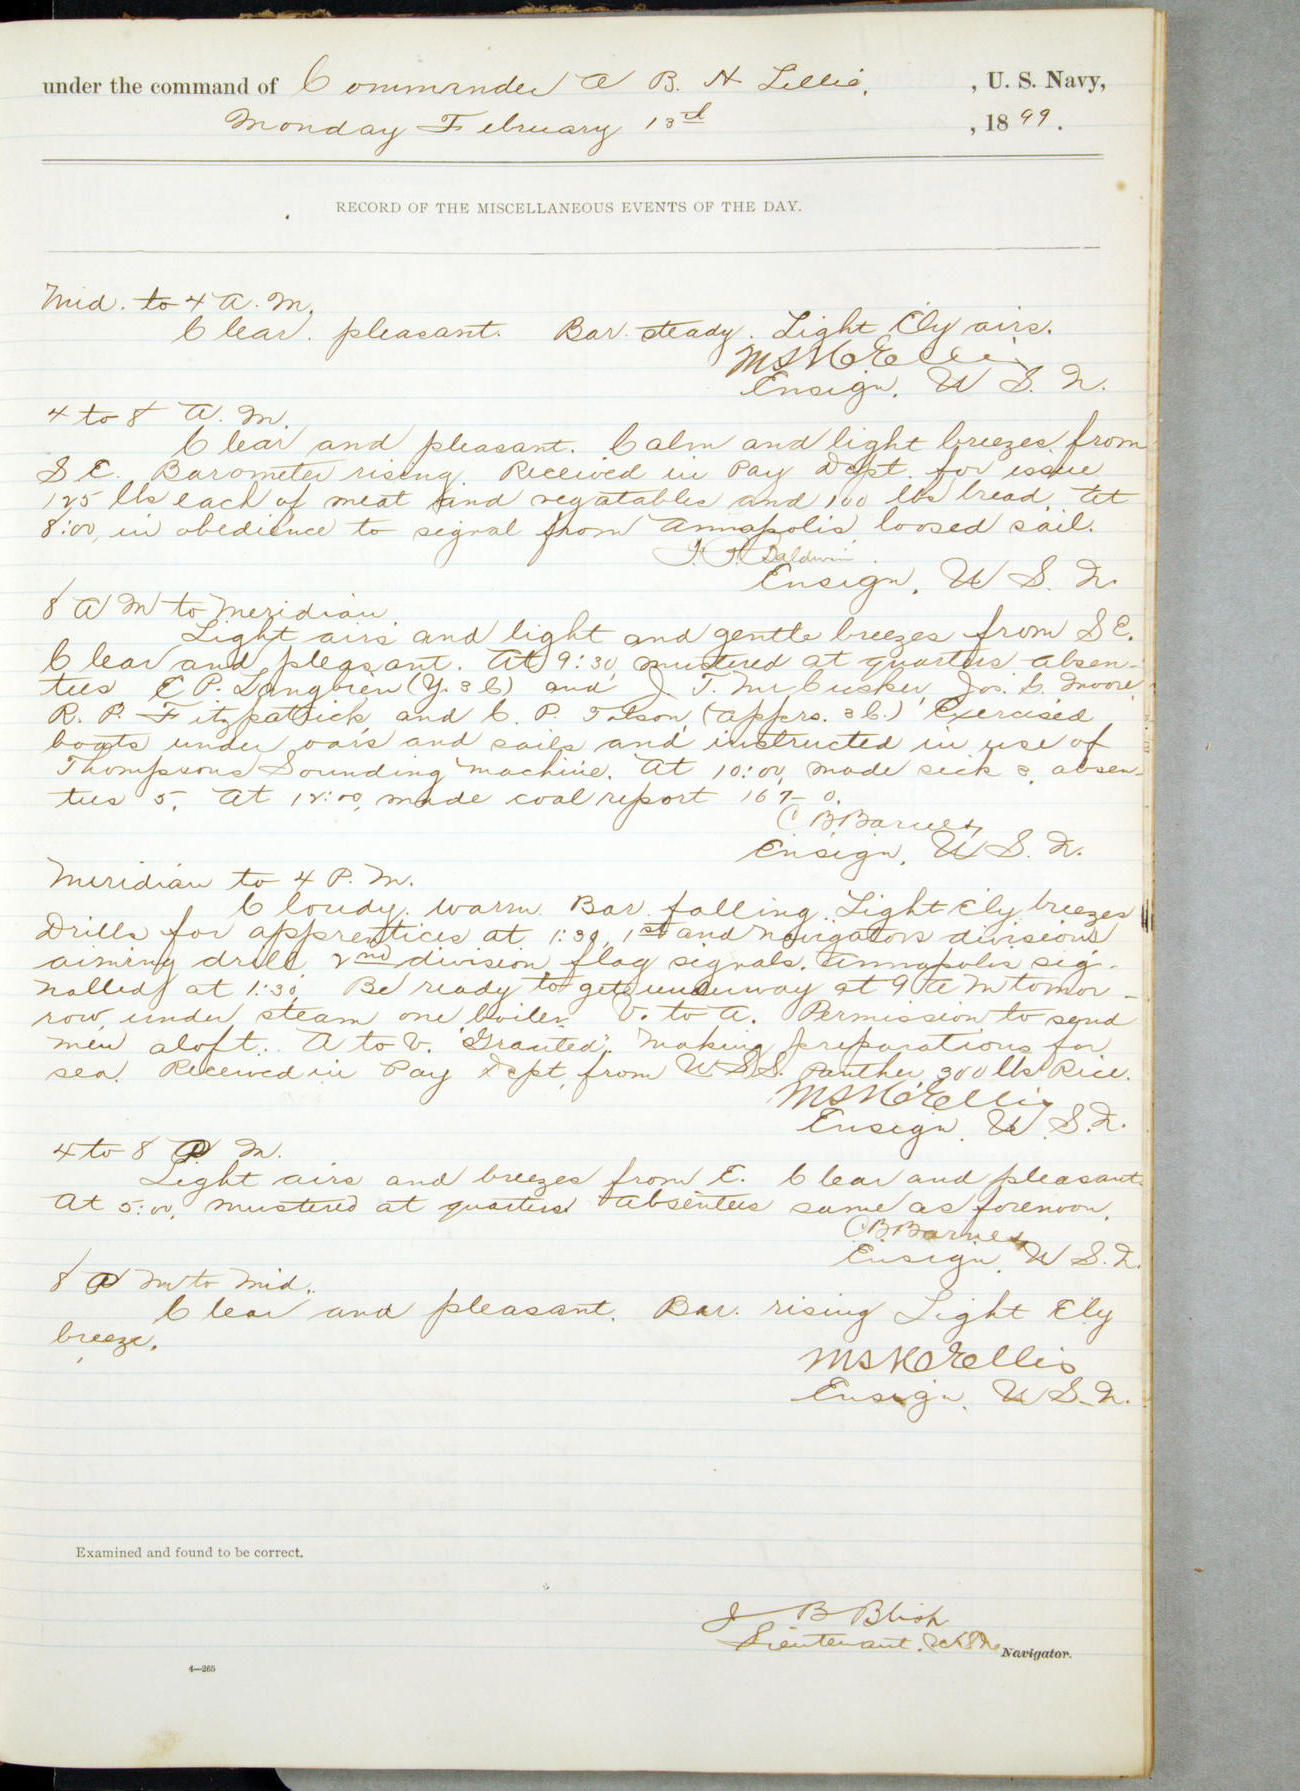 under the command of Commander A B. H Lillie, , U. S. Navy,
Monday February 13rd , 1899.
RECORD OF THE MISCELLANEOUS EVENTS OF THE DAY.
Mid. to 4 A. M.
Clear. pleasant. Bar. steady. Light E'ly airs.
Ellis
Ensign, U S. N.
4 to 8 A. M.
Clear and pleasant. Calm and light breezes from
S E. Barometer rising. Received in Pay Dept. for issue
125 lbs each of meat and vegatables and 100 lbs bread. At
8:00, in obedience to signal from Annapolis, loosed sail.
Baldwin
Ensign, U S. N.
8 A M to Meridian.
Light airs and light and gentle breezes from S E.
Clear and pleasant. At 9:30, mustered at quarters absen-
tees E P. Langbien (Y. 3 C) and J T. McCusker, Jos. C. Moore
R. P. Fitzpatrick and C. P. Tilson (apprs. 3 C.) Exercised
boats under oars and sails and instructed in use of
Thompsons Sounding Machine. At 10:00, made sick 3, absen-
tees 5. At 12:00, made coal report 167-0.
C B Barnes,
Ensign, U S. N.
Meridian to 4 P. M.
Cloudy. warm. Bar. falling. Light E'ly breezes
Drills for apprentices at 1:30, 1st and Navigators divisions
aiming drill, 2nd division flag signals. Annapolis sig-
nalled at 1:30, Be ready to get underway at 9 A M tomor-
row, under steam one boiler. V. to A. Permission to send
men aloft. A to V. "Granted". Making preparations for
sea. Received in Pay Dept, from U S S. Panther, 300 lbs Rice.
Ellis
Ensign, U. S. N.
4 to 8 P M.
Light airs and breezes from E. Clear and pleasant.
At 5:00, mustered at quarters Absentees same as forenoon.
C B Barnes
Ensign, U S. N.
8 P M to Mid.
Clear and pleasant. Bar. rising Light E'ly
breeze.
Ellis
Ensign, U S. N.
Examined and found to be correct.
J B Blish
Lieutenant, U S N Navigator.
4—265